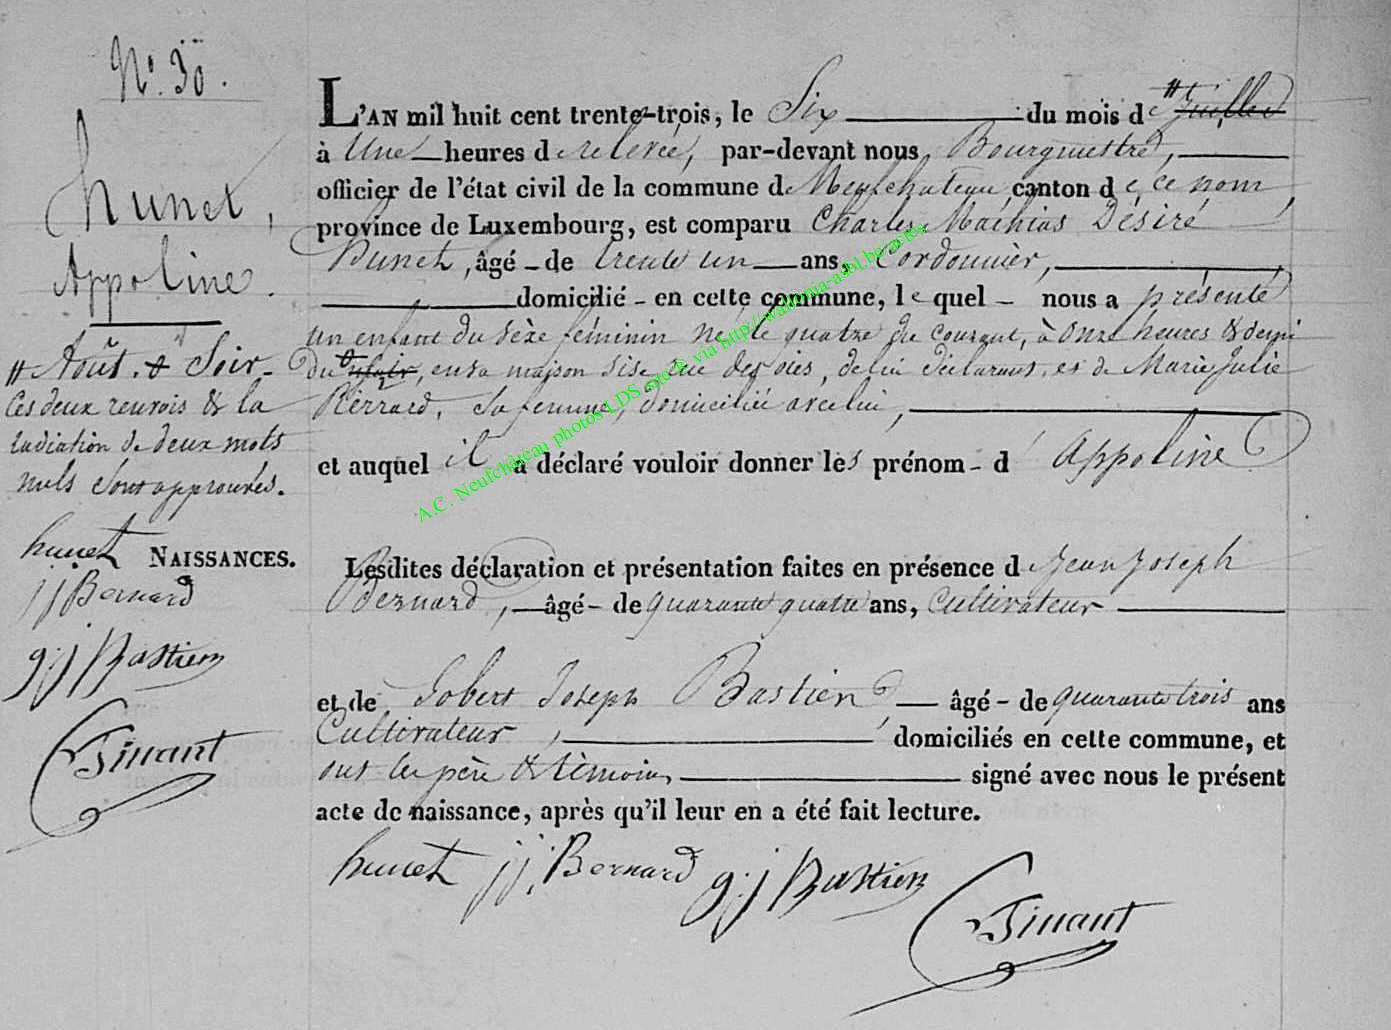 N.º 30.
hunet,
Appoline.
# Août. + Soir.
Ces deux renvois & la
radiation de deux mots
nuls sont approuvés.
hunet
jj Bernard
g:j Bastien
Tinant
NAISSANCES.
L'AN mil huit cent trente-trois, le Six du mois de # Juillet
à Une heures de relevée, par-devant nous Bourgmestre,
officier de l'état civil de la commune de Neufchateau canton de ce nom
province de Luxembourg, est comparu Charles Mathias Désiré
Hunet, âgé - de trente un ans, Cordonnier,
domicilié - en cette commune, lequel - nous a présenté
un enfant du sèxe féminin né le quatre du courant, à onze heures & demi
du +, en sa maison sise rue des oies, de lui déclarant, et de Marie Julie
Pierrard, sa femme, domiciliée avec lui,
et auquel il a déclaré vouloir donner les prénom - d' Appoline
Lesdites déclaration et présentation faites en présence de Jean Joseph
Bernard, âgé - de quarante quatre ans, Cultivateur
et de Gobert Joseph Bastien, âgé - de quarante trois ans
Cultivateur, domiciliés en cette commune, et
ont les père & témoins signé avec nous le présent
acte de naissance, après qu'il leur en a été fait lecture.
hunet jj. Bernard g:j Bastien
Tinant
A.C. Neufchâteau photos LDS site @ via http://wallonia-asbl.be/actex